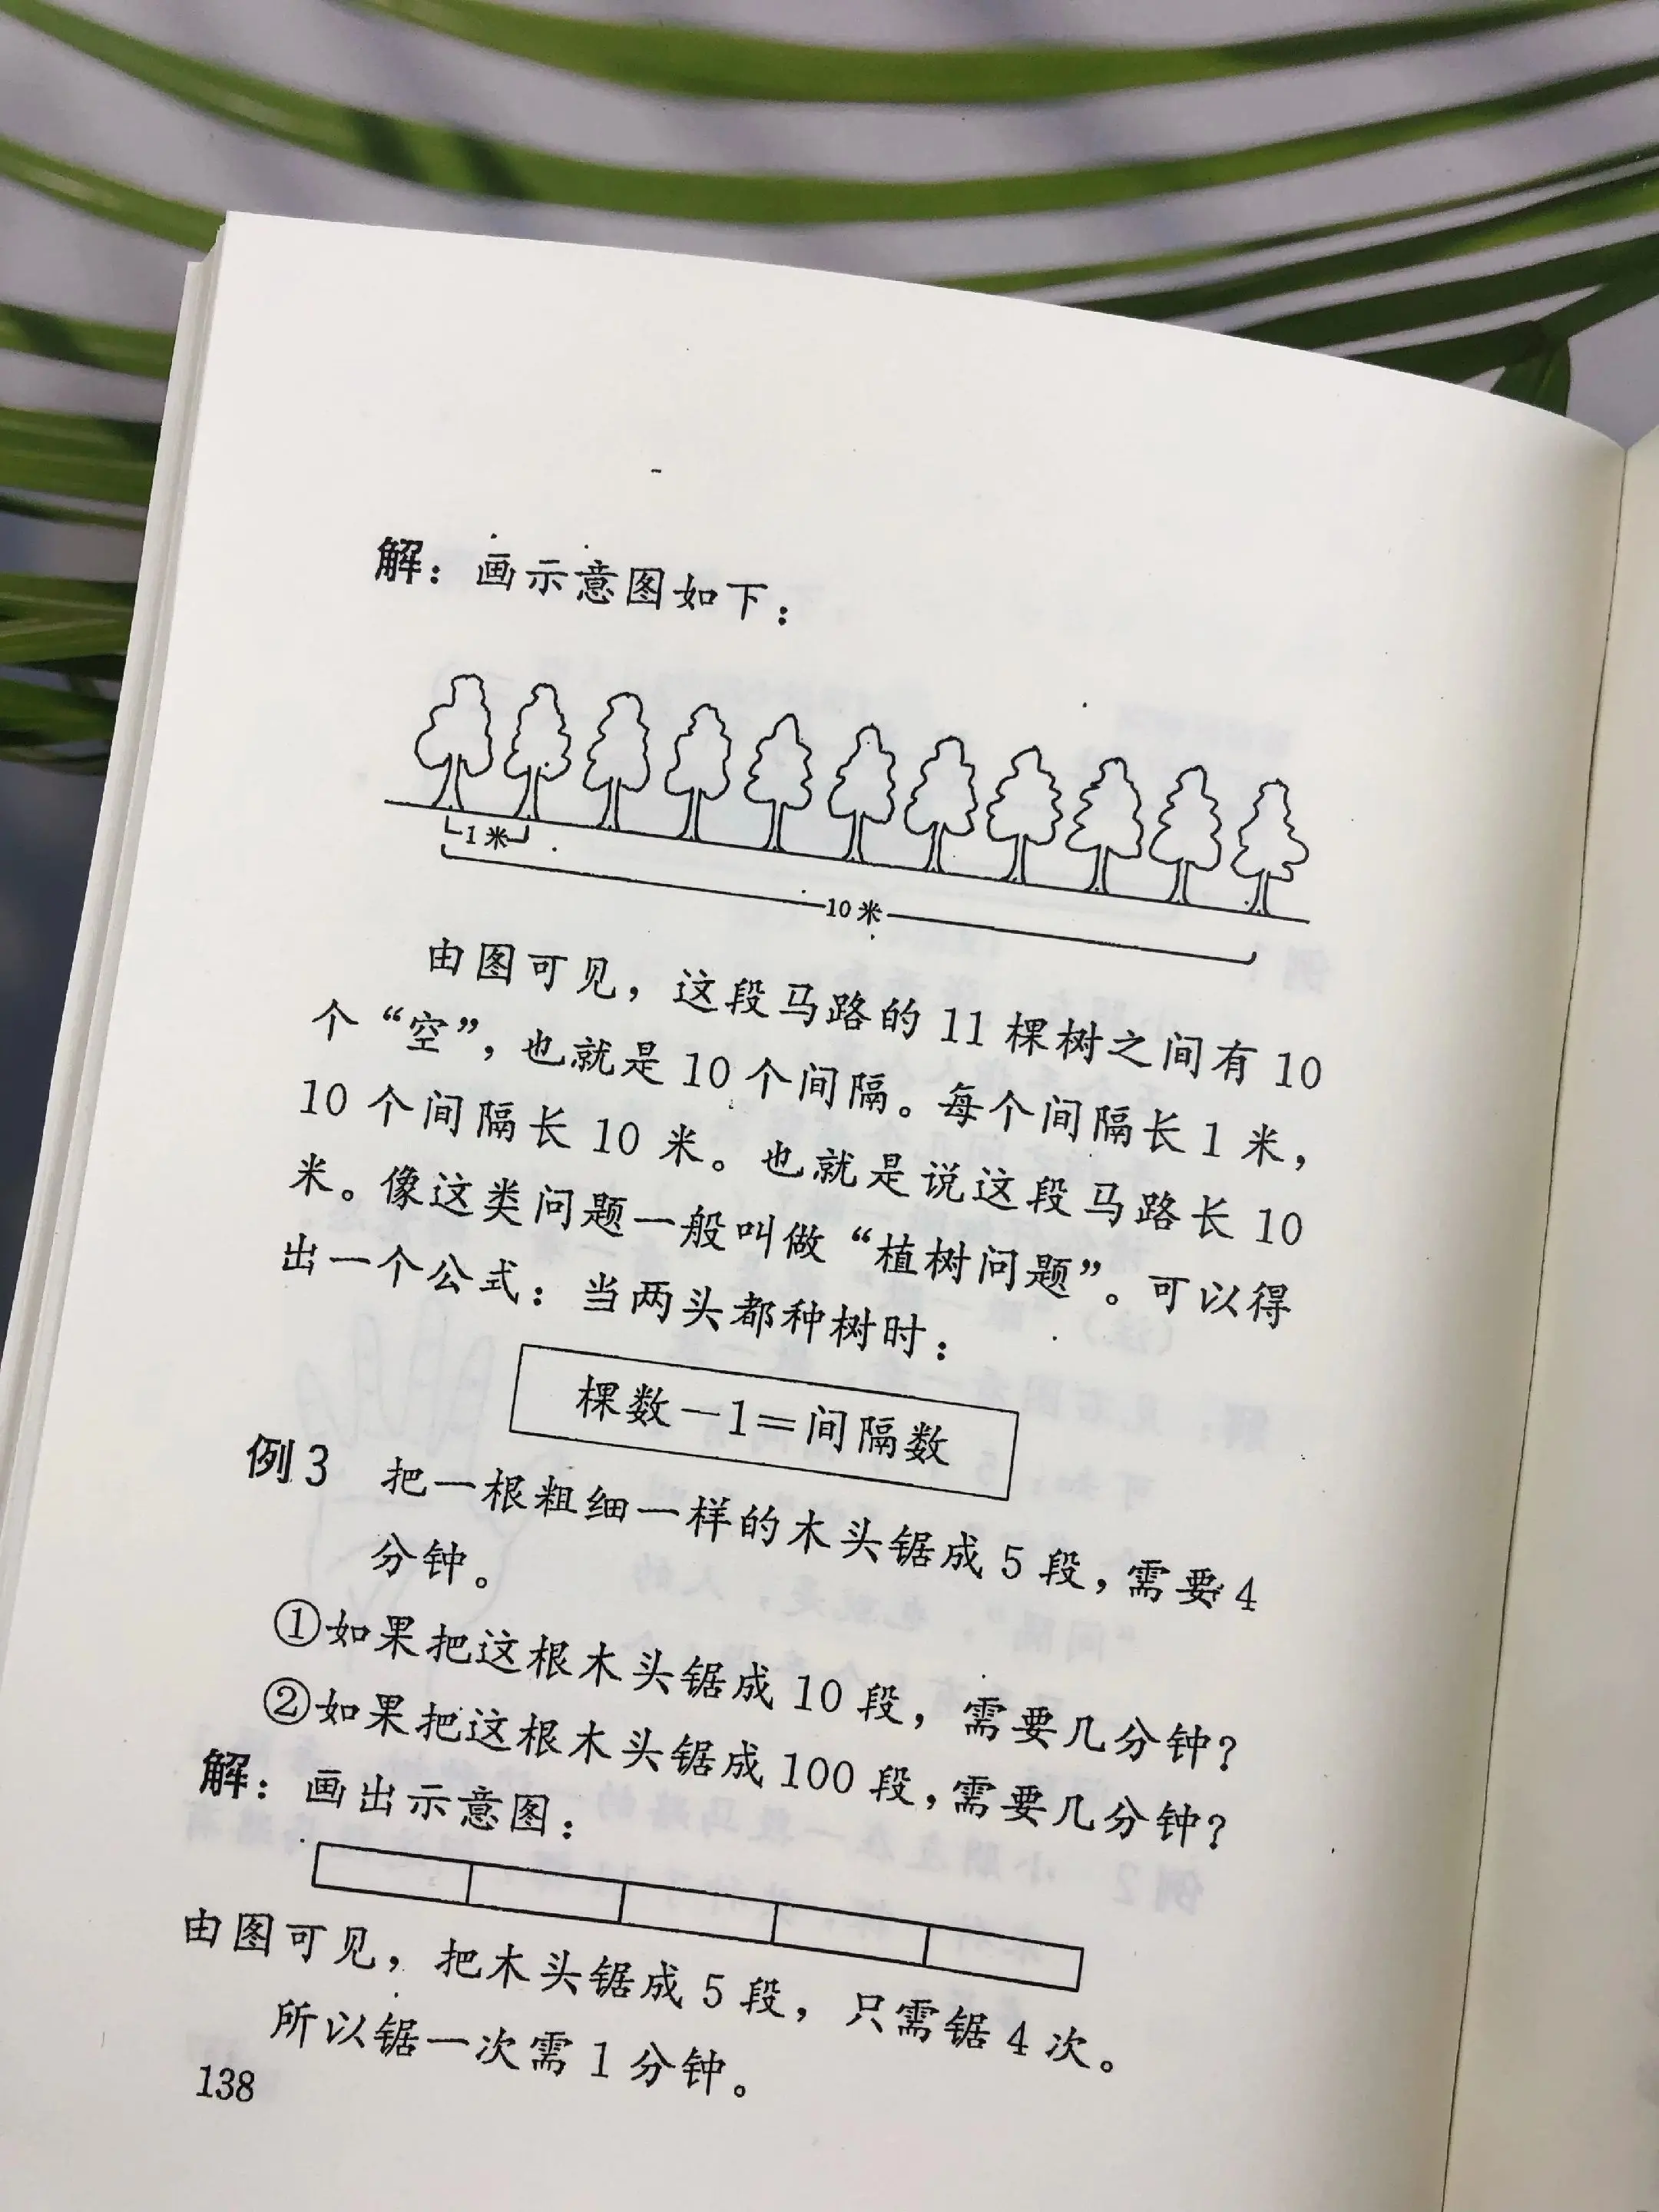 解：画示意图如下：
1米
10米
由图可见，这段马路的11棵树之间有10
个“空”，也就是10个间隔。每个间隔长1米，
10个间隔长10米。也就是说这段马路长10
米。像这类问题一般叫做“植树问题”。可以得
出一个公式：当两头都种树时：
棵数－1＝间隔数
例3 把一根粗细一样的木头锯成5段，需要4
分钟。
①如果把这根木头锯成10段，需要几分钟？
②如果把这根木头锯成100段，需要几分钟？
解：画出示意图：
由图可见，把木头锯成5段，只需锯4次。
所以锯一次需1分钟。
138